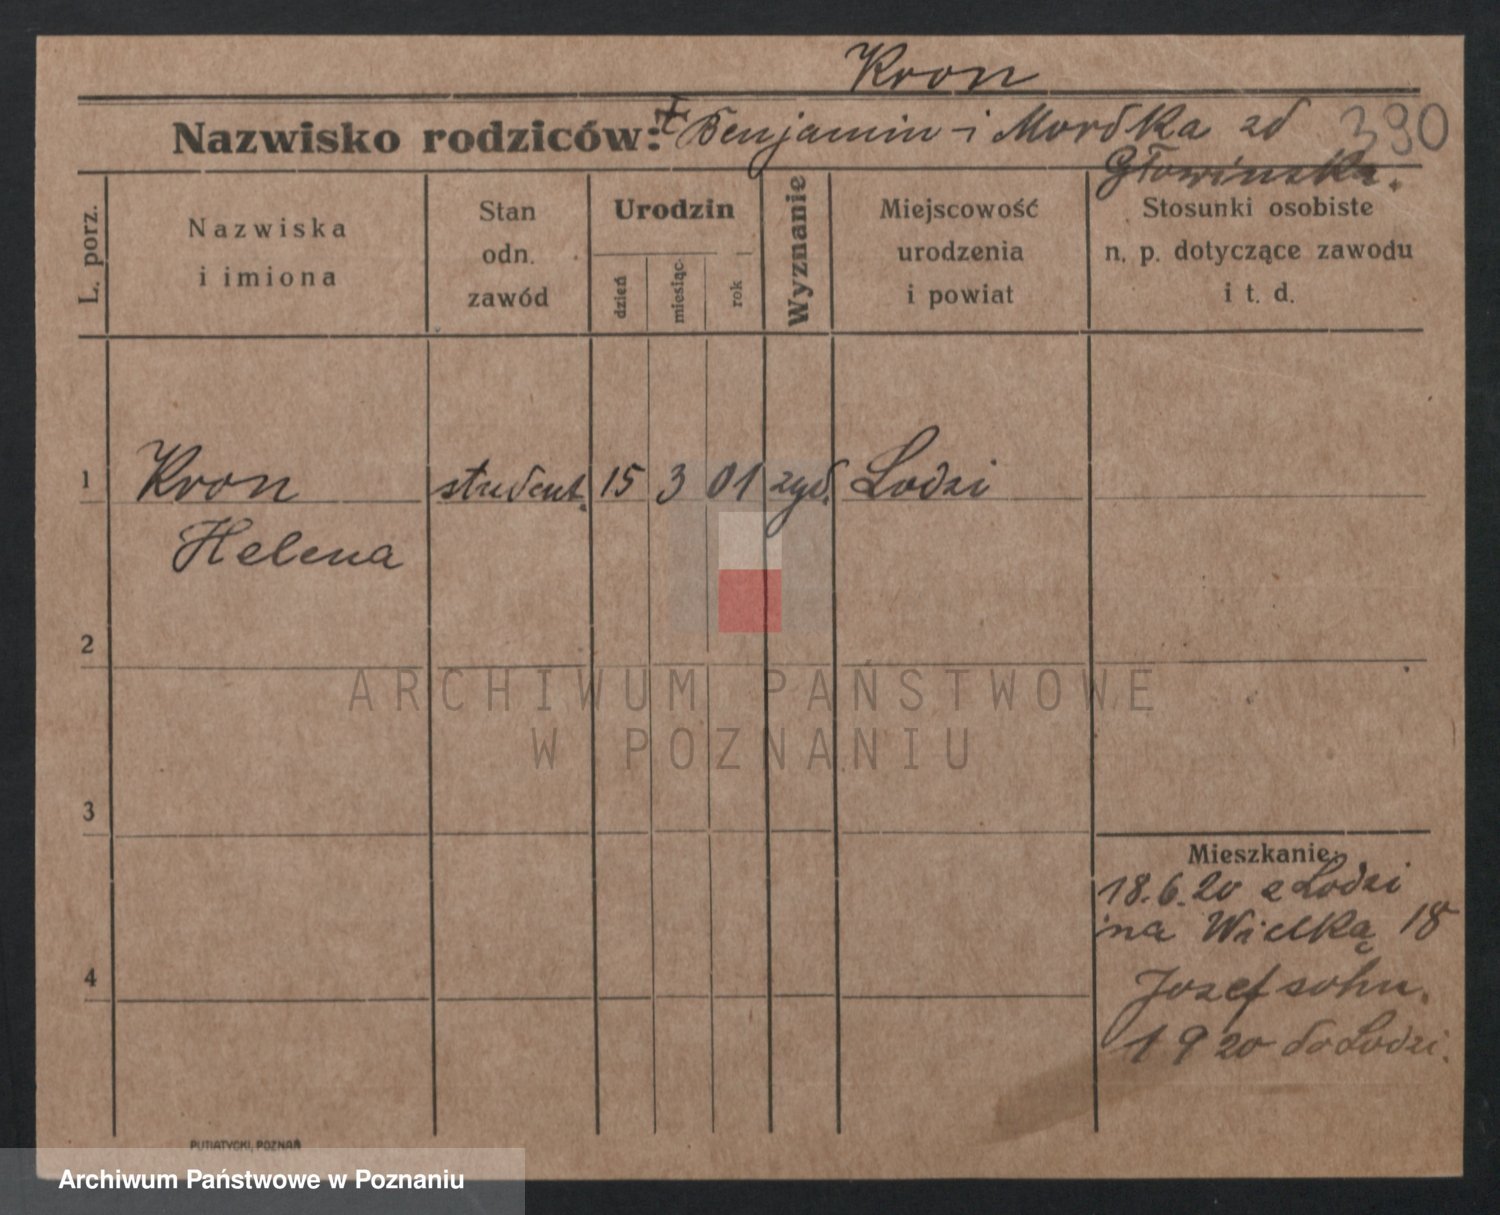 Kron
Nazwisko rodziców: Benjamin i Mordka zd
390
Głowinska.
L. porz.
Nazwiska
i imiona
Stan
odn.
zawód
Urodzin
dzień
miesiąc
rok
Wyznanie
Miejscowość
urodzenia
i powiat
Stosunki osobiste
n. p. dotyczące zawodu
i t. d.
1 Kron student. 15 3 01 żyd. Lodzi
Helena
2
ARCHIWUM PAŃSTWOWE
W POZNANIU
3
Mieszkanie:
18.6.20 z Lodzi
na Wielką 18
4
Josefsohn.
1 9 20 do Lodzi.
PUTIATYCKI, POZNAŃ
Archiwum Państwowe w Poznaniu